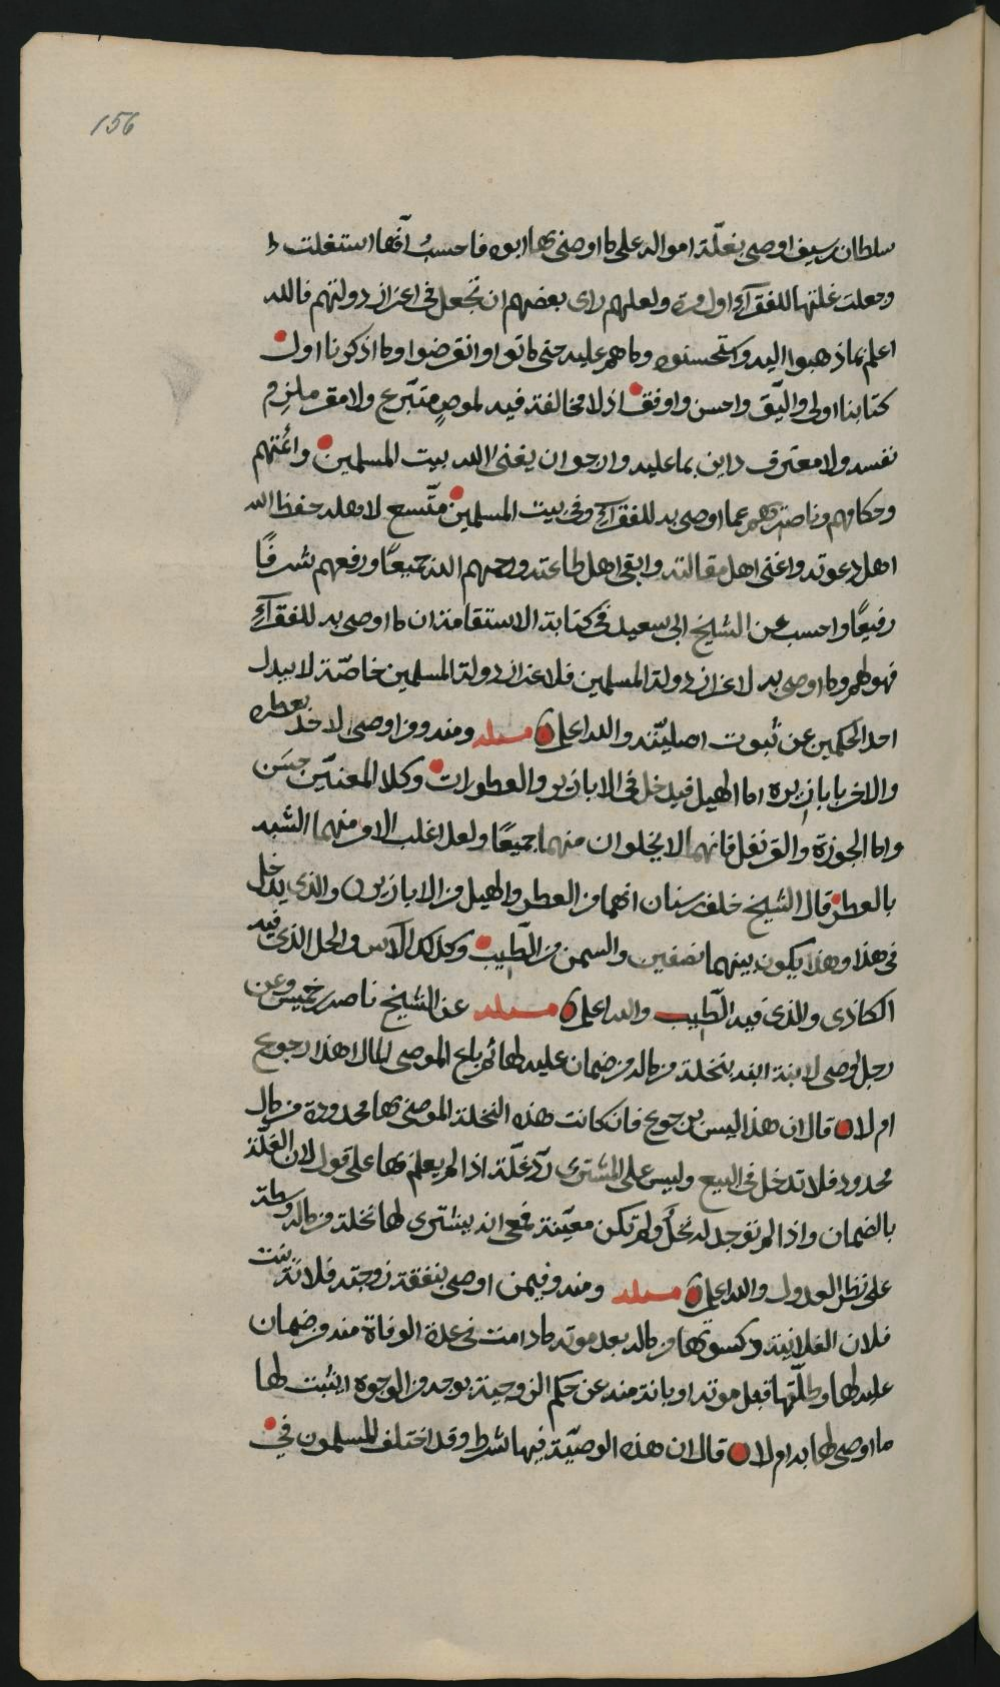 156
سلطان بن سيف اوصى بغلّة امواله على ما اوصى بها ابوه فاحسبُ آنّها استغلت
وجعلت غلتها للفقرآءِ اول مرة ولعلهم راى بعضهم ان تجعل فى اعزاز دولتهم فالله
اعلم بما ذهبوا اليه واستحسنوه وما هم عليه حتى ماتوا وانقرضوا وما اذكرنا اول
كتابنا اولى واليّق واحسن واوفق اذ لا مخالفة فيه لموصٍ متبّرع ولا مقر ملزم
نفسه ولا معترف داين بما عليه وارجو ان يغنى الله بيت المسلمين وائمّتهم
وحكامهم وناصريهم عما اوصى به للفقرآءِ وفى بيت المسلمين متّسع لاهله حفظ الله
اهل دعوته واغنى اهل مقالته وابقى اهل طاعته ورحمهم الله جميعًا ورفعهم شرفًا
رفيعًا واحسب عن الشيخ ابى سعيد فى كتابة الاستقامة ان ما اوصى به للفقرآءِ
فهو لهم وما اوصى به لاعزاز دولة المسلمين فلاعزاز دولة المسلمين خاصّة لا يبدل
احد الحكمين عن ثبوت اصليّته والله اعلم مسئلة ومنه ومن اوصى لاحد بعطره
والاخر بابازيره اما الهيل فيدخل فى الابازير والعطورات وكلا المعنيّين حسَن
واما الجوزة والقرنفل فانهما لا يخلوان منهما جميعًا ولعل اغلب الامر منهما الشبه
بالعطر قال الشيخ خلف بن سنان انهما من العطر والهيل من الابازير والذى يدخل
فى هذا وهذا يكون بينهما نصفين والسمن من الطّيب وكذلك الآس والحل الذى فيه
الكاذى والذى فيه الطّيب والله اعلم مسئلة عن الشيخ ناصر بن خميس وعن
رجل اوصى لابنة ابنه بنخلة من ماله من ضمان عليه لها ثم باع الموصى المال اهذا رجوع
ام لا قال ان هذا ليس برجوع فان كانت هذه النخلة الموصى بها محدودة من مال
محدود فلا تدخل فى البيع وليس على المشترى ردّ غلّة اذا لم يعلم بها على قول لان الغلّة
بالضمان واذا لم توجد له نخلٌ ولم تكن معيّنة فمعى انه يشترى لها نخلة من ماله وسطة
على نظر العدول والله اعلم مسئلة ومنه وفيمن اوصى بنفقة زوجته فلانة بنت
فلان الفلانية وكسوتها من ماله بعد موته ما دامت فى عدة الوفاة منه من ضمان
عليه لها وطلّقها قبل موته او بانت منه عن حكم الزوجية بوجه من الوجوه ايثبت لها
ما اوصى لها به ام لا قال ان هذه الوصيّة فيها شرط وقد اختلف المسلمون فى